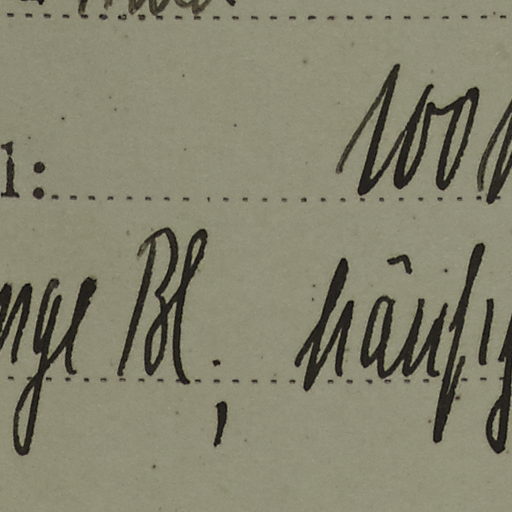 l: 100
nge Bl.; häufig